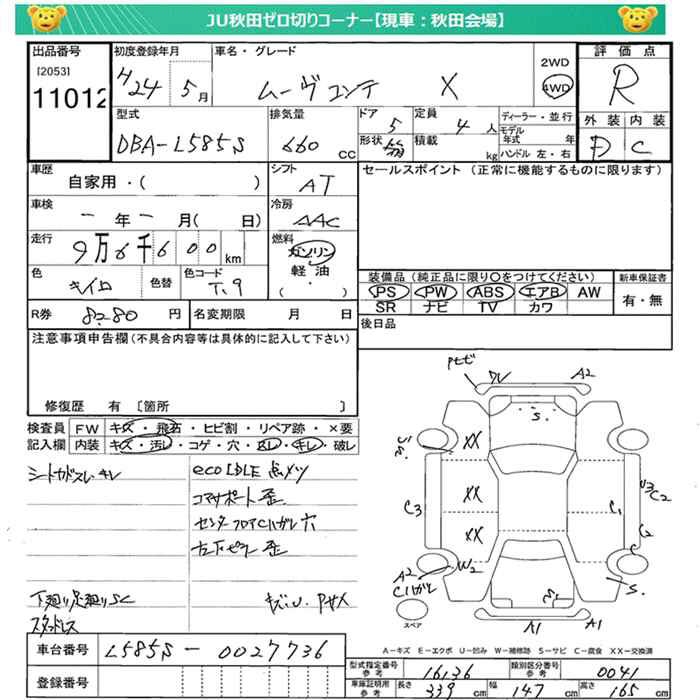 JU秋田ゼロ切りコーナー【現車：秋田会場】
出品番号 初度登録年月 車名・グレード 評価点
[2053]
11012
H24 5月 ムーヴコンテ X 2WD 4WD R
型式 排気量 ドア 定員 ディーラー・並行 外装 内装
DBA-L585S 660 CC 5 4人 モデル年式 年 D C
形状 積載 kg ハンドル 左・右
車歴 自家用・( ) シフト AT セールスポイント (正常に機能するものに限ります)
車検 ー年ー月( 日) 冷房 AAC
走行 9万6千600km 燃料 ガソリン 軽油 ( ・ )
色 キイロ 色替 色コード T.9
装備品 (純正品に限り〇をつけてください) 新車保証書
PS PW ABS エアB AW 有・無
SR ナビ TV カワ
R券 8280円 名変期限 月 日 後日品
注意事項申告欄(不具合内容等は具体的に記入して下さい)
修復歴 有 [箇所 ]
検査員 FW キズ・飛石・ヒビ割・リペア跡・×要
記入欄 内装 キズ・汚レ・コゲ・穴・スレ・キレ・破レ
eco IDLE 点メツ
コアサポート歪
センターフロアCハガレ穴
下廻り足廻りSC
スタッドレス
A2
S.
XX
XX
XX
C3
C1
C2
W2
A2
S.
S.
A1 A1
スペア
A-キズ E-エクボ U-凹み W-補修跡 S-サビ C-腐食 XX-交換済
車台番号 L585S-0027736
登録番号
型式指定番号 参考 16136 類別区分番号 参考 0041
車庫証明用 参考 長さ 339cm 幅 147cm 高さ 165cm